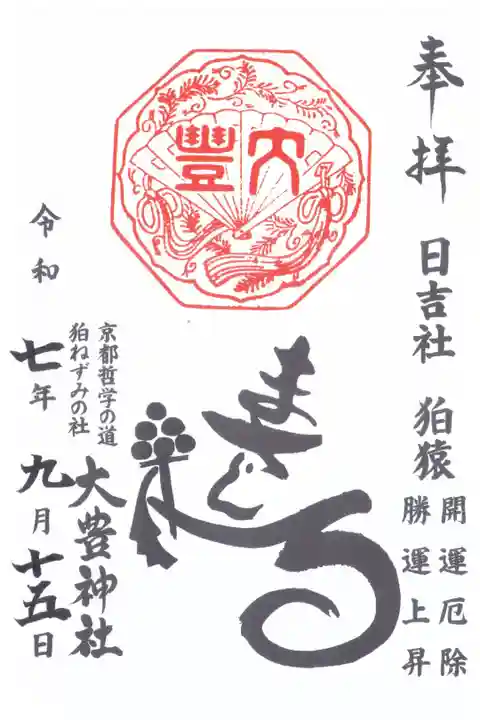 奉拝 日吉社 狛猿
開運厄除
勝運上昇
大豊
まさる
京都哲学の道
狛ねずみの社
大豊神社
令和七年九月十五日